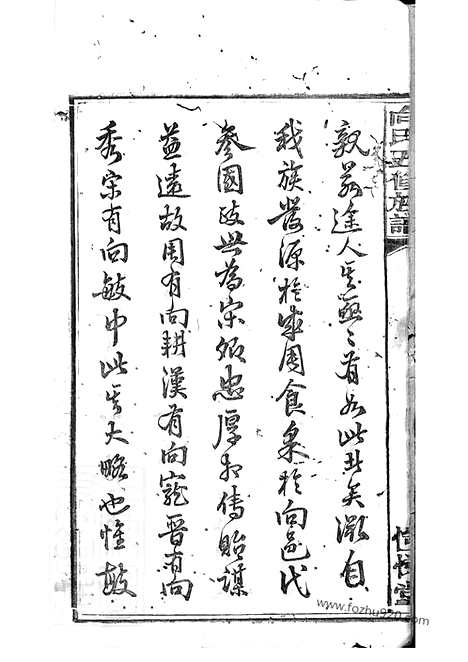 向氏五修族譜
孰若途人其區區有如此哉溯自
我族發源於成周食采於向邑代
參國政世為宋卿忠厚相傳貽謀
益遠故周有向耕漢有向寵晉有向
秀宋有向敏中此其大略也惟敼
www.fozhu920.com